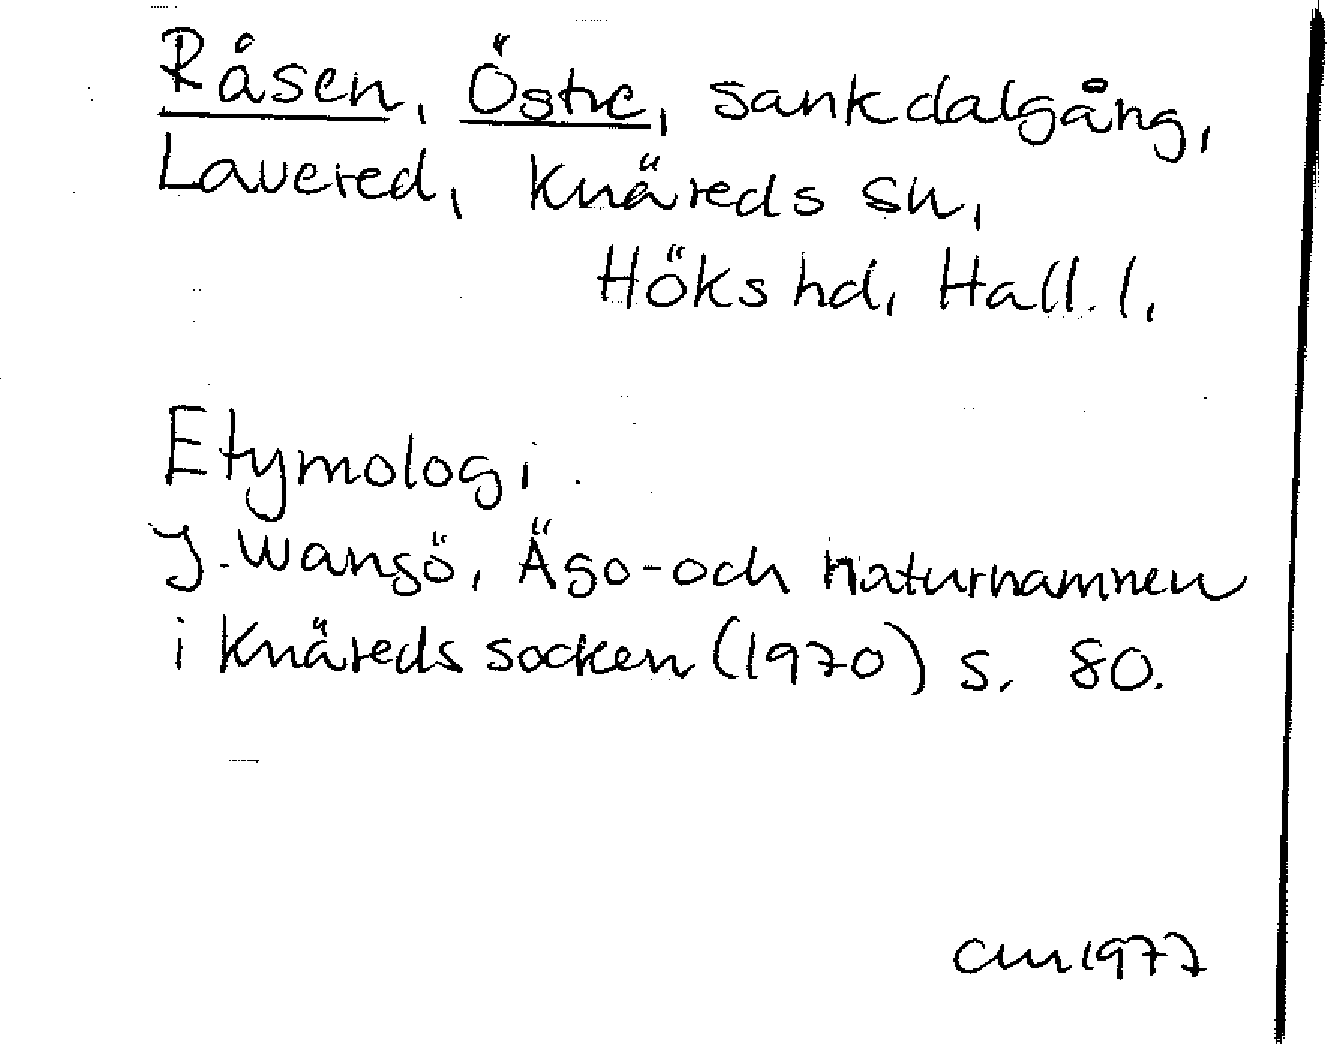 Råsen, Östre, sank dalgång,
Lavered, Knäreds sn,
Höks hd, Hall. l.
Etymologi.
J. Wangö, Ägo- och naturnamnen
i Knäreds socken (1970) s. 80.
CM 1977